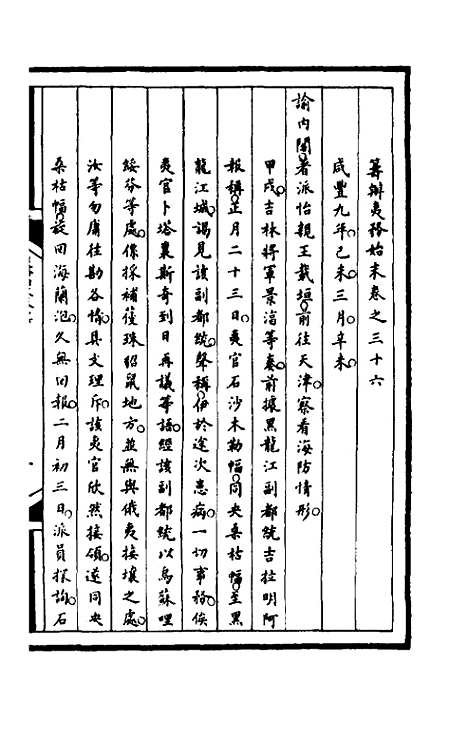 籌辦夷務始末卷之三十六
咸豐九年己未三月辛未
諭內閣著派怡親王載垣前往天津察看海防情形
甲戌吉林將軍景淳等奏前據黑龍江副都統吉拉明阿
報稱正月二十三日夷官石沙木勒幅同夹桑枯幅至黑
龍江城謁見該副都統聲稱伊於途次患病一切事務俟
夷官卜塔裏斯奇到日再議等語經該副都統以烏蘇哩
綏芬等處係採補葠珠貂鼠地方並無與俄夷接壤之處
汝等勿庸往勘各情具文理斥該夷官欣然接領遂同夹
桑枯幅旋回海蘭泡久無回報二月初三日派員探詢石